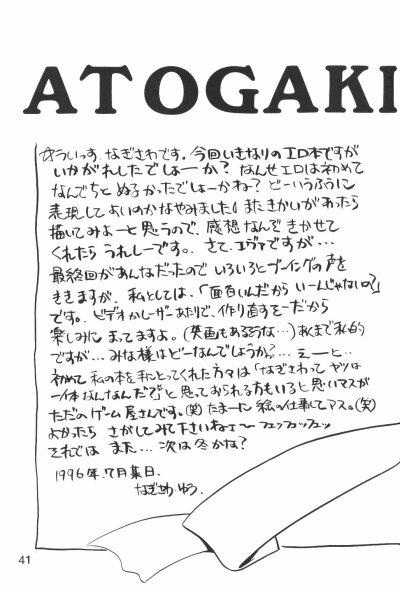 ATOGAKI
ういっす、なぎさわです。今回いきなりのエロ本ですが
いかがれしたでしょーか？なんせエロは初めて
なんでちとぬるかったでしょーかね？どーいうふうに
表現してよいのかなやみました。またきかいがあったら
描いてみよーと思うので、感想なんぞきかせて
くれたらうれしーです。さて、エヴァですが…
最終回があんなだったのでいろいろとブーイングの声を
ききますが、私としては、「面白いんだからいーんじゃないの？」
です。ビデオかレーザーあたりで、作り直すそーだから
楽しみにまってますよ。(映画もあるそうな…)あくまで私的
ですが…みな様はどーなんでしょうか？…えーと…
初めて私の本を手にとってくれた方々は「なぎさわってヤツは
一体なんなんだ？」と思っておられる方もいると思いマスが
ただのゲーム屋さんです。(笑)たまーに絵の仕事してマス。(笑)
よかったらさがしてみて下さいねェ〜フェッフェッフェッ
それではまた…次は冬かな？
1996年.7月某日.
なぎさわ・ゆう
41